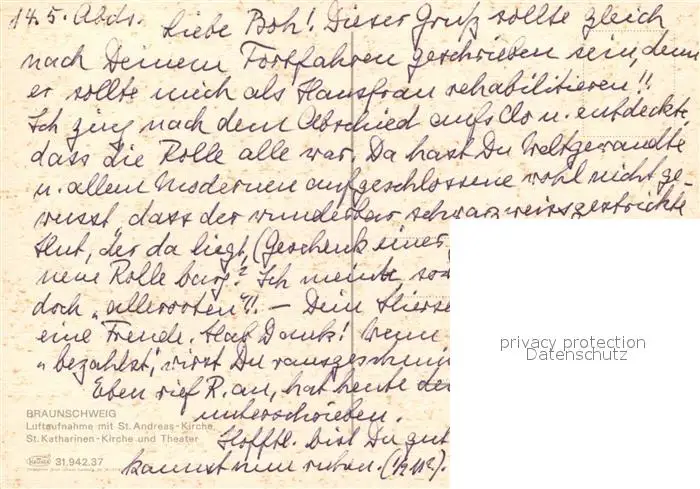 14.5. Abds. Liebe Boh! Dieser Gruß sollte gleich
nach Deinem Fortfahren geschrieben sein, denn
er sollte mich als Hausfrau rehabilitieren!!
Ich ging nach dem Abschied aufs Clo u. entdeckte,
dass die Rolle alle war. Da hast Du Weltgewandte
u. allem Modernen aufgeschlossene wohl nicht ge-
wusst, dass der wunderbar schwarzweissgestrickte
Hut, der da liegt, (Geschenk einer
neue Rolle barg? Ich meinte, so
doch "
eine Freude. Hab Dank! Wenn
"bezahlst", wirst Du rausgeschmi
Eben rief R. an, hat heute den
unterschrieben.
Hofftl. bist Du gut
kannst nun ruhen. (1/2 11h).
BRAUNSCHWEIG
Luftaufnahme mit St. Andreas-Kirche,
St. Katharinen-Kirche und Theater
31.942.37
privacy protection
Datenschutz